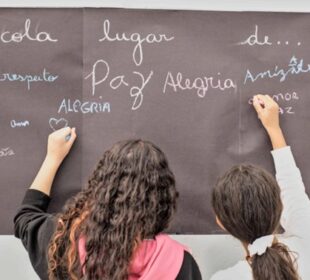 scola lugar de...
respeto Paz Alegria Amizade
ALEGRIA AMOR
ama PAZ
Paz